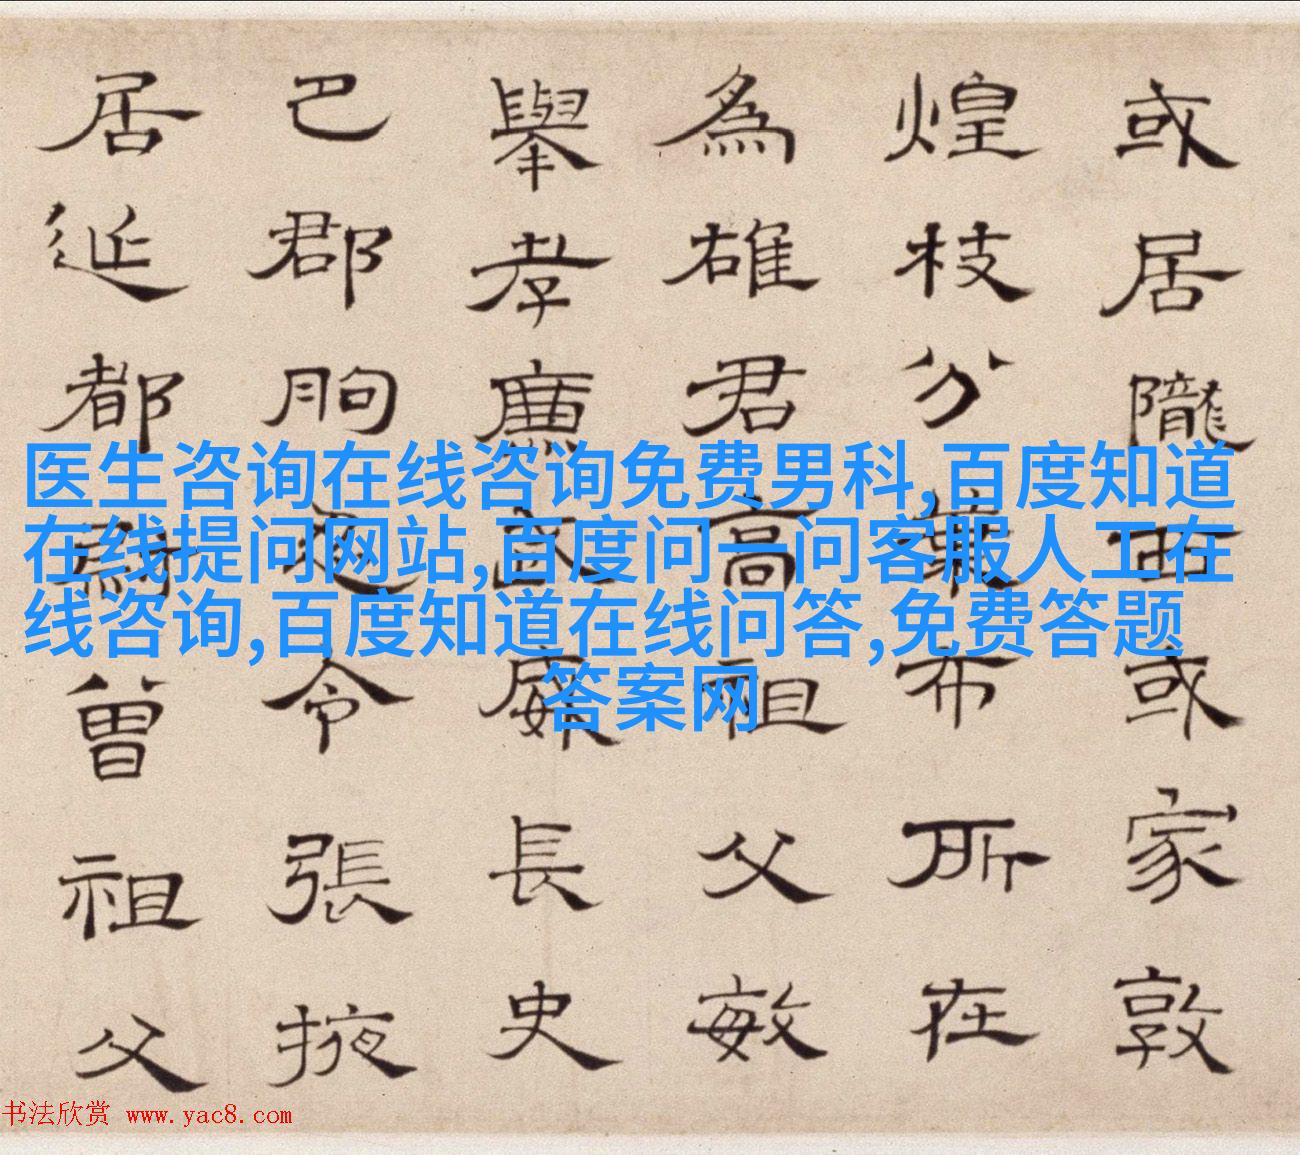 或居隴西或家敦
煌枝分葉布所在
為雄君高祖父敏
舉孝廉武威長史
巴郡朐忍令張掖
居延都尉曾祖父
医生咨询在线咨询免费男科,百度知道
在线提问网站,百度问一问客服人工在
线咨询,百度知道在线问答,免费答题
答案网
书法欣赏 www.yac8.com